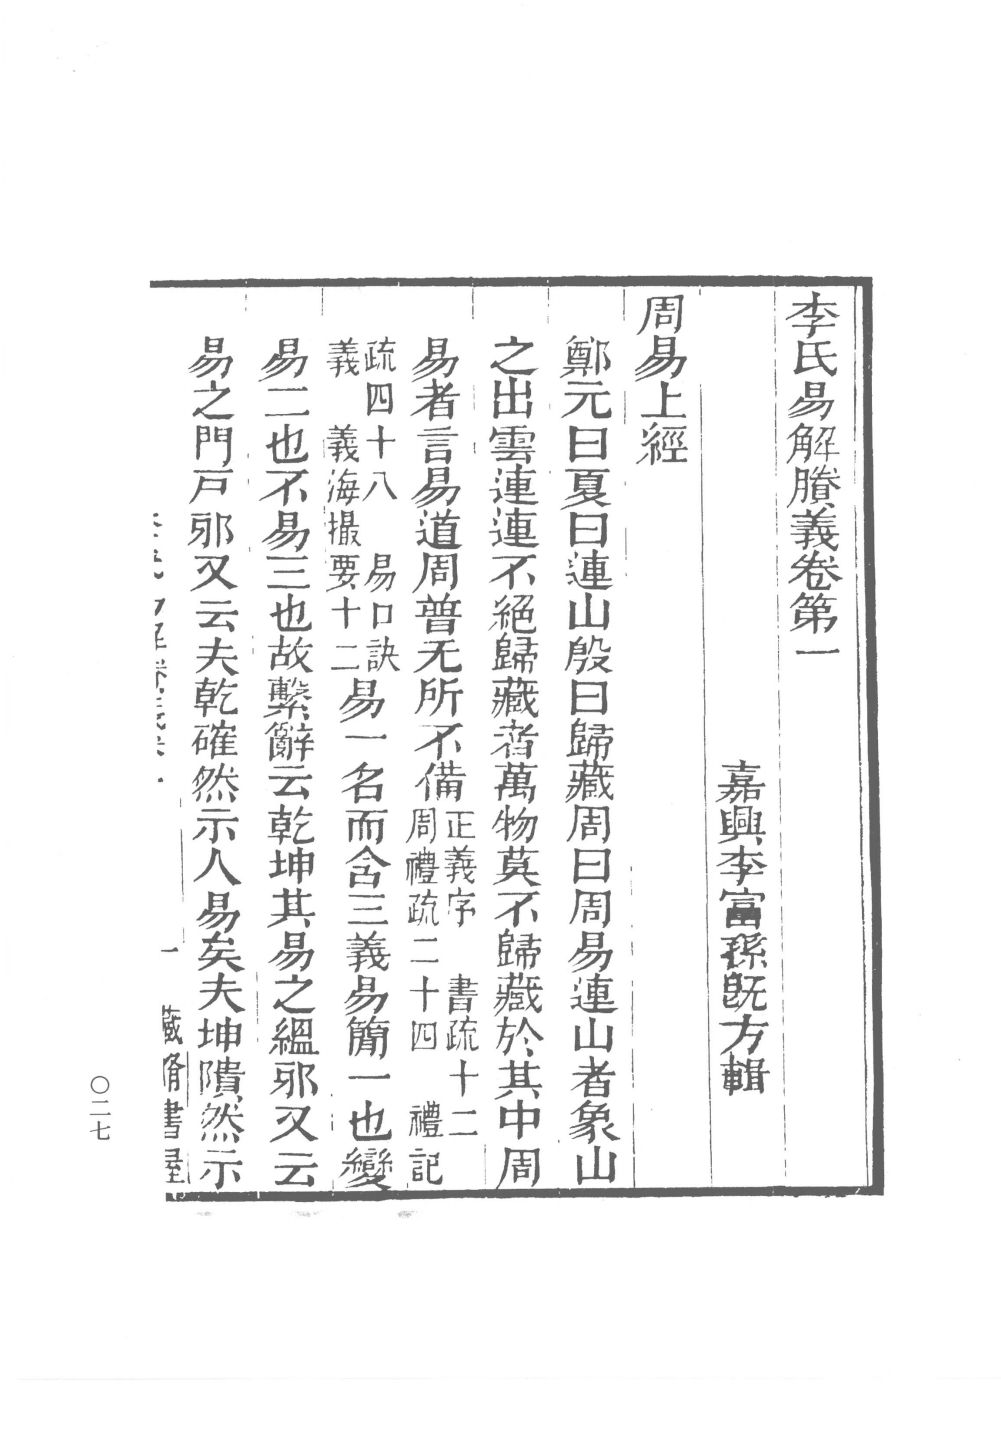 李氏易解賸義卷第一
嘉興李富孫旣方輯
周易上經
鄭元曰夏曰連山殷曰歸藏周曰周易連山者象山
之出雲連連不絕歸藏者萬物莫不歸藏於其中周
易者言易道周普无所不備正義字　書疏十二周禮疏二十四　禮記
疏四十八　易口訣義　義海撮要十二易一名而含三義易簡一也變
易二也不易三也故繫辭云乾坤其易之緼邪又云
易之門戸邪又云夫乾確然示人易矣夫坤隤然示
一
藏脩書屋
〇二七